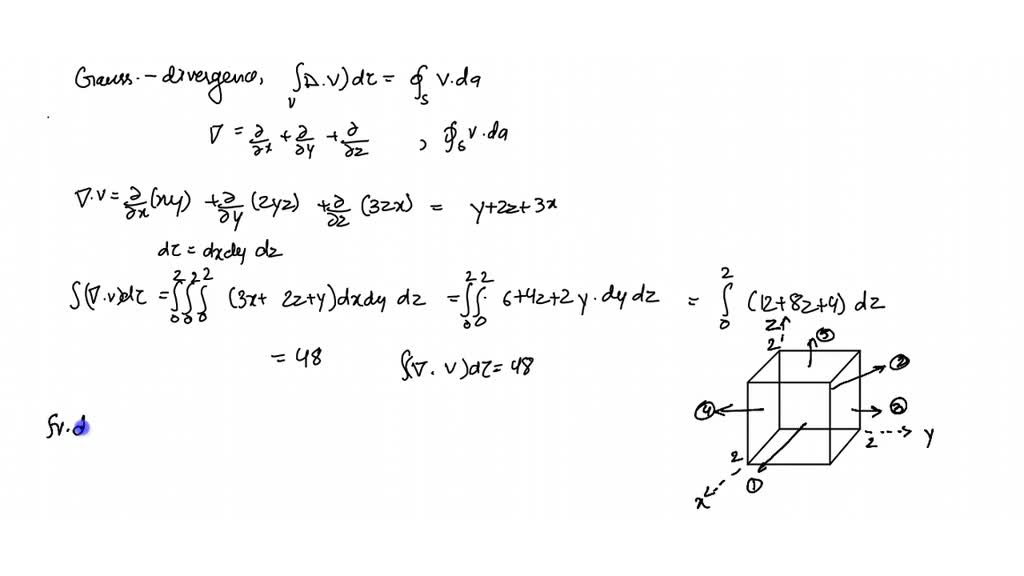 Gauss.-divergence, ∫(∇.v)dτ = ∮ v.da
V S
∇ = ∂/∂x + ∂/∂y + ∂/∂z , ∮6 v.da
∇.v = ∂/∂x (xy) + ∂/∂y (2yz) + ∂/∂z (3zx) = y+2z+3x
dτ = dxdy dz
∫(∇.v)dτ = ∫₀²∫₀²∫₀² (3x+ 2z+y)dxdy dz = ∫₀²∫₀² 6+4z+2y.dydz = ∫₀² (12+8z+4) dz
= 48 ∫(∇. v)dτ=48
∫v.d
z
2
5
2
4
3
2
y
2
x
1